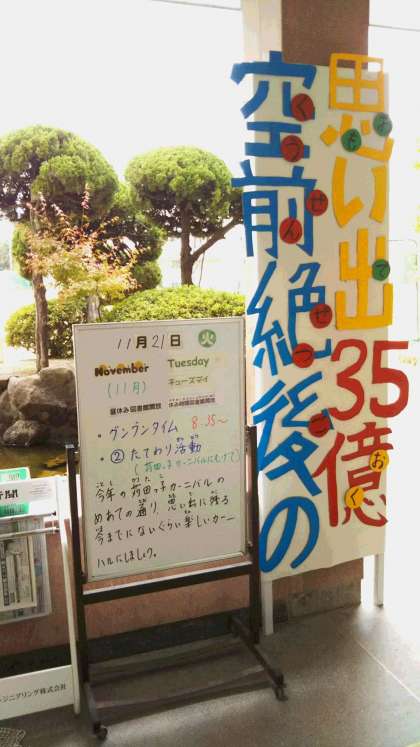 空前絶後の
くうせんせつご
思い出
おもで
35億
おく
11月21日 火
November
Tuesday
(11月)
チューズデイ
昼休み図書館開放
休み時間図書館開放
・グングンタイム 8:35〜
・② たてわり活動
(荷田っ子カーニバルにむけて)
今年の荷田っ子カーニバルの
めあての通り、思い出に残る
今までにないぐらい楽しいカーニ
バルにしましょう。
ジニアリング株式会社